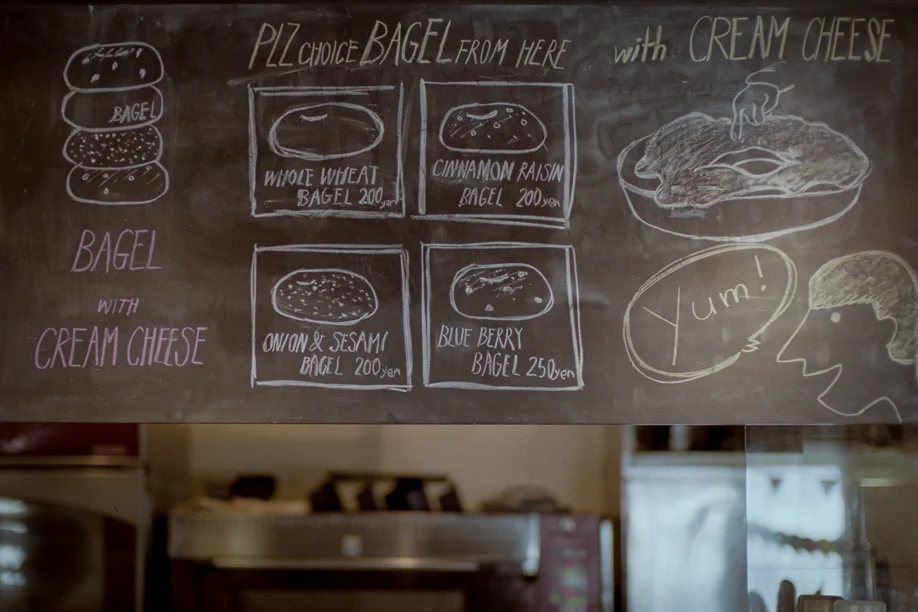 PLZ CHOICE BAGEL FROM HERE
with CREAM CHEESE
BAGEL
WHOLE WHEAT
BAGEL 200yen
CINNAMON RAISIN
BAGEL 200yen
BAGEL
WITH
CREAM CHEESE
ONION & SESAMI
BAGEL 200yen
BLUE BERRY
BAGEL 250yen
Yum!